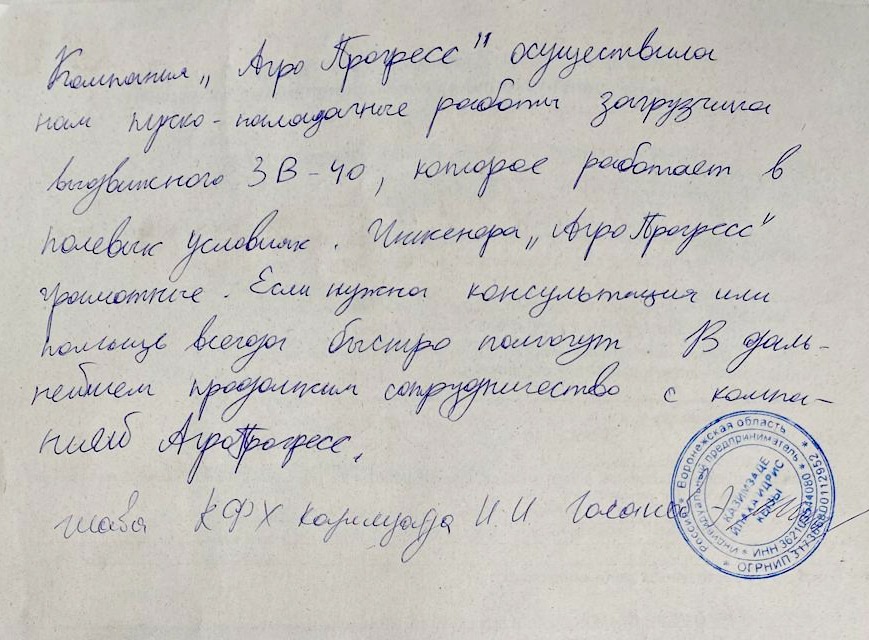 Компания „Агро Прогресс" осуществила
нам пуско-наладочные работы загрузчика
выдвижного ЗВ-40, которое работает в
полевых условиях. Инженера „АгроПрогресс"
грамотные. Если нужна консультация или
помощь всегда быстро помогут. В даль-
нейшем продолжим сотрудничество с компа-
нией АгроПрогресс.
глава КФХ И.И.
Российская Воронежская область
Индивидуальный предприниматель
КАЗИМЗАДЕ
ИПАХА ИДРИС
КЫЗЫ
ИНН
ОГРНИП